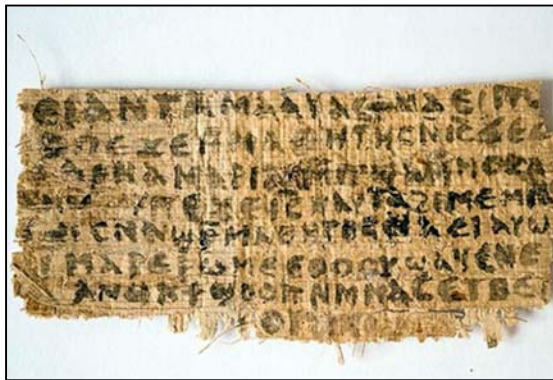 ⲉⲓ ⲁⲛ ⲧⲁⲙⲁⲁⲩ ⲁⲥϯ ⲛⲁⲉⲓ
ⲡⲉϫⲉ ⲙⲙⲁⲑⲏⲧⲏⲥ ⲛⲓⲥ ϫⲉ
ⲁⲣⲛⲁ ⲙⲁⲣⲓⲁⲙ
ⲡⲉϫⲉ ⲓⲥ ⲛⲁⲩ ⲧⲁϩⲓⲙⲉ ⲙⲛ
ⲥⲛⲁϣⲣⲙⲁⲑⲏⲧⲏⲥ ⲛⲁⲉⲓ ⲁⲩⲱ
ⲙⲁⲣⲉⲣⲱⲙⲉ ⲉⲑⲟⲟⲩ ϣⲁϥⲉ ⲛⲉ
ⲁⲛⲟⲕ ϯϣⲟⲟⲡ ⲛⲙⲙⲁⲥ ⲉⲧⲃⲉ